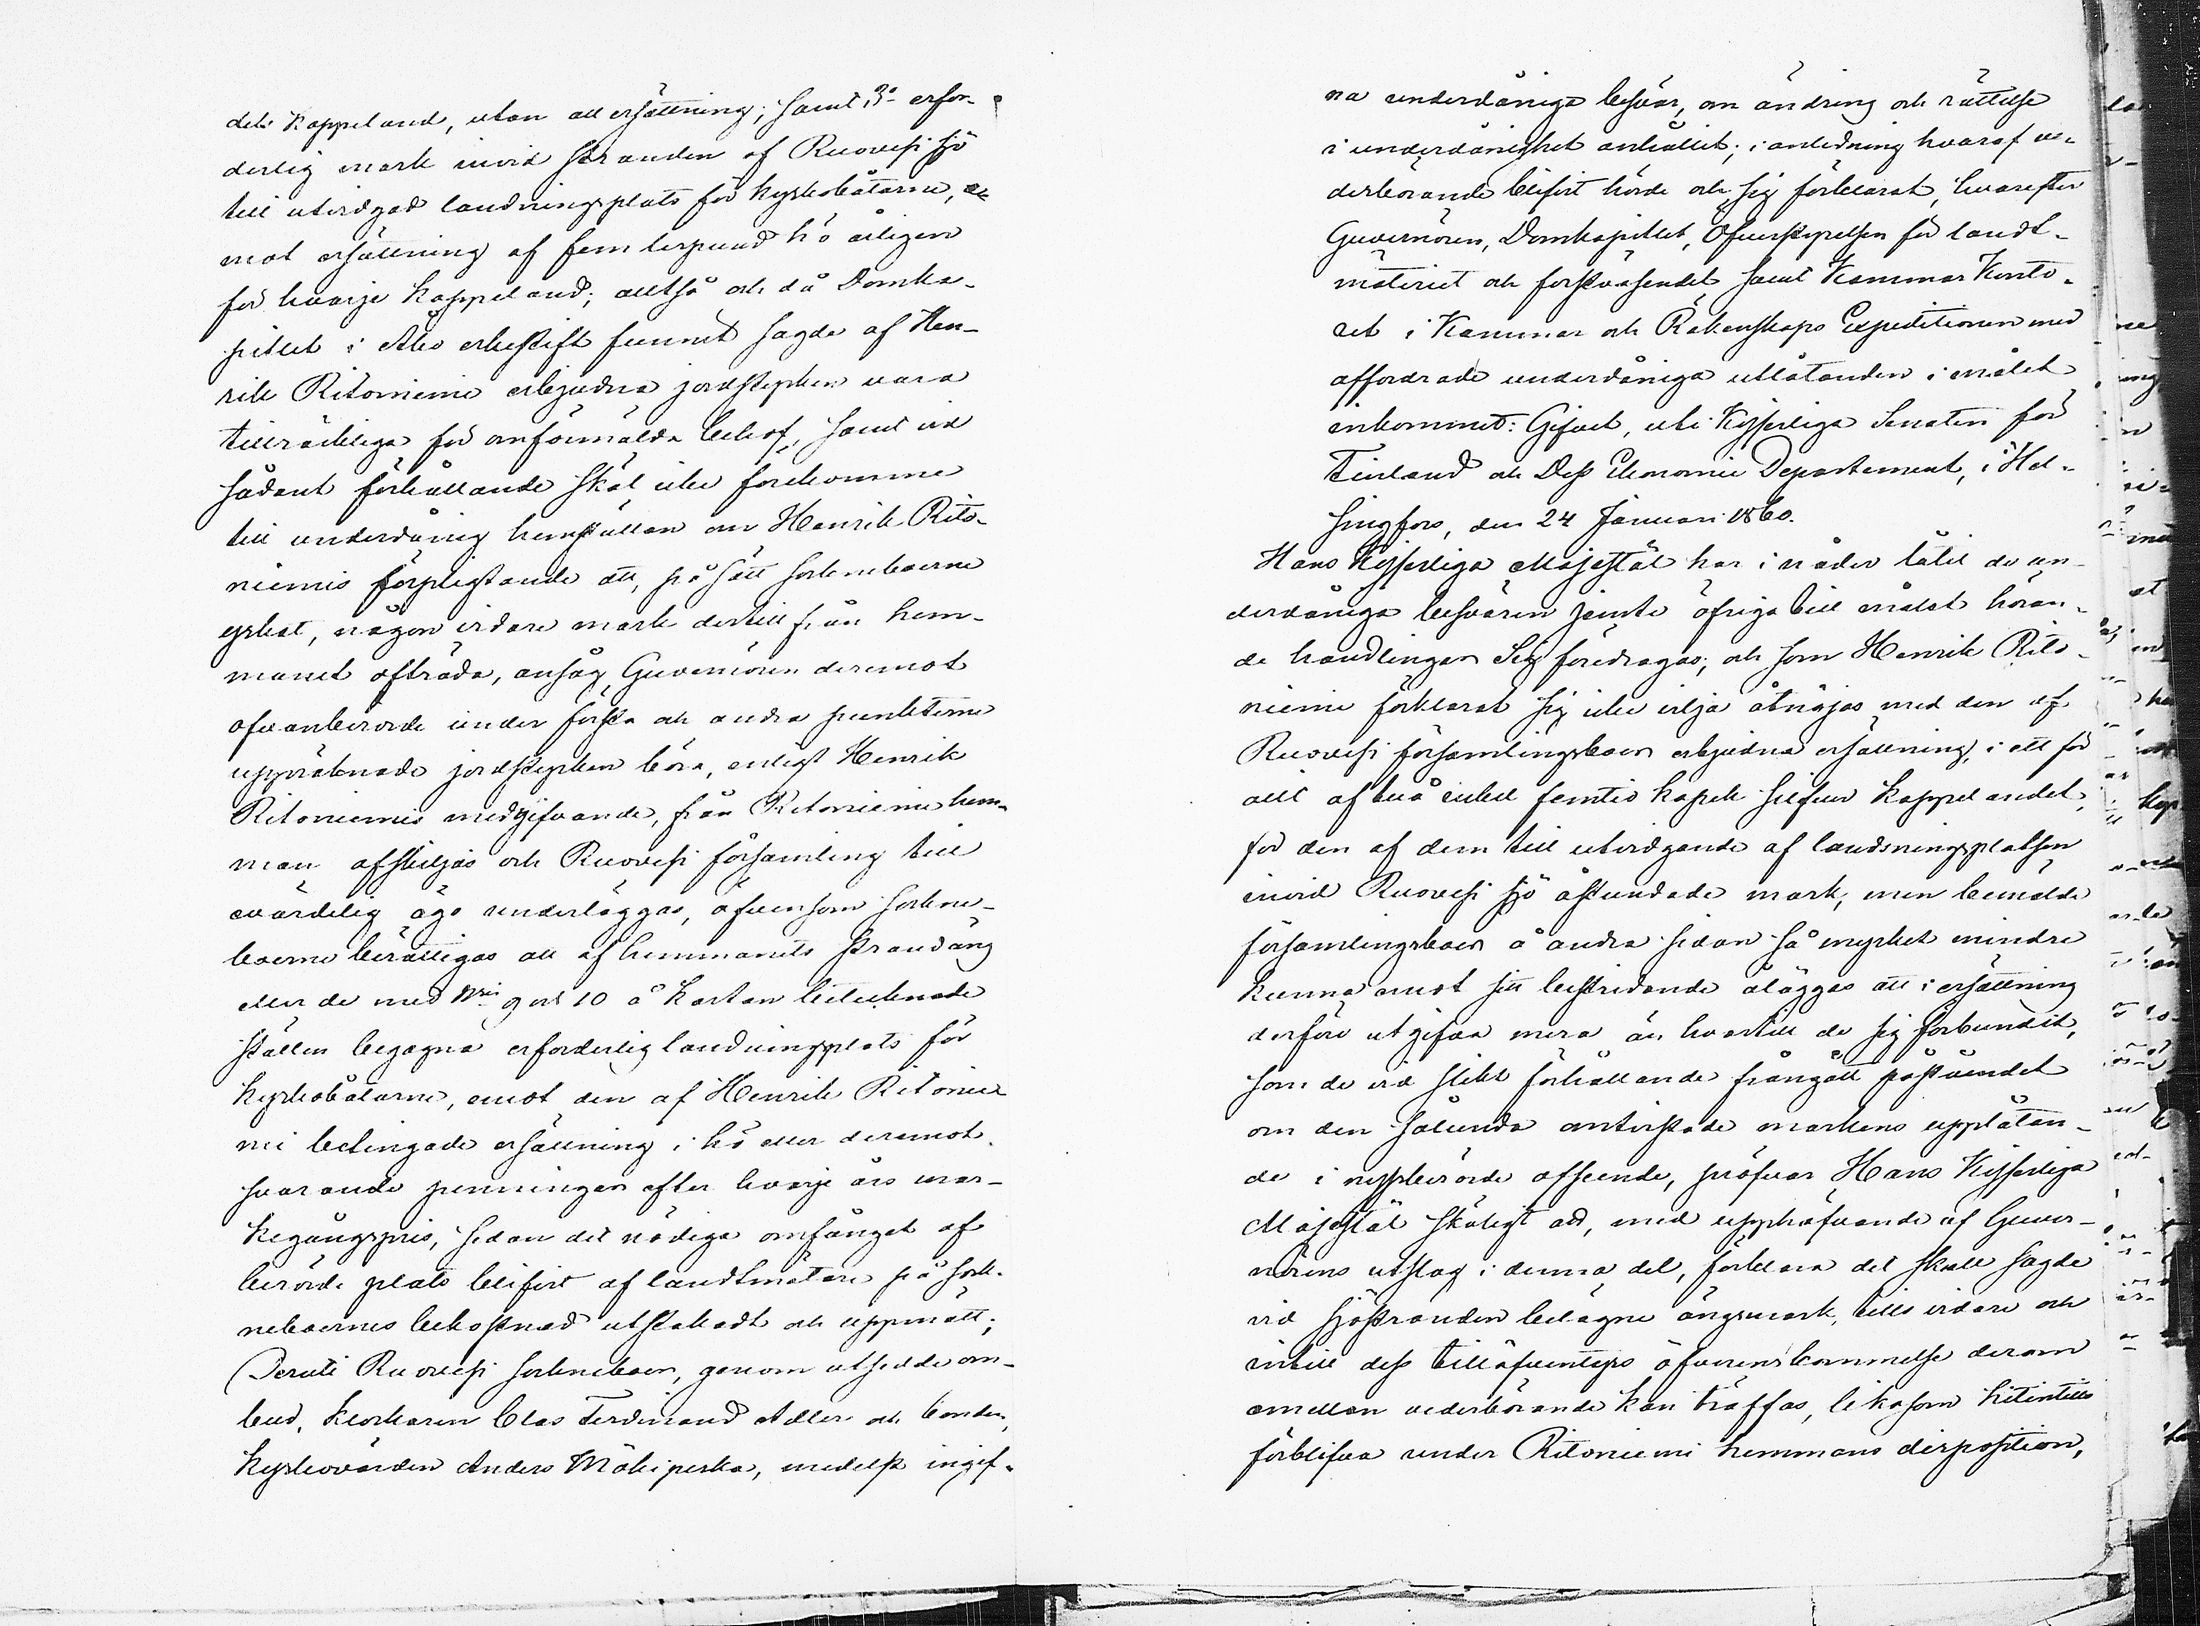 dels kappeland, utan all ersättning; samt 3o erfor-
derlig mark invid stranden af Ruovesi sjö
till utvidgad landningsplats för kyrkobåtarne, e-
mot ersättning af fem lispund hö årligen
för hvarje kappeland; alltså och då Domka-
pitlet i Åbo erkestift funnit sagde af Hen-
rik Ritoniemi erbjudna jordstycken vara
tillräckliga för anförmälda behof, samt vid
sådant förhållande skäl icke förekomme
till underdånig hemställan om Henrik Rito-
niemis förpligtande att, på sätt sockneboerne
yrkat, någon vidare mark dertill från hem-
manet afträda, ansåg Guvernören deremot
ofvanberörde under första och andra punkterne
uppräknade jordstycken böra, enligt Henrik
Ritoniemis medgifvande, från Ritoniemi hem-
man afskiljas och Ruovesi församling till
evärdelig ägo underläggas, äfvensom sockne-
boerne berättigas att af hemmanets strandäng
eller de med No 9 och 10 å kartan betecknade
ställen begagna erforderlig landningsplats för
kyrkobåtarne, emot den af Henrik Ritonie-
mi betingade ersättning i hö eller deremot
svarande penningar efter hvarje års mar-
kegångspris, sedan det nödiga omfånget af
berörde plats blifvit af landtmätare på sock-
neboernes bekostnad utstakadt och uppmätt;
Deruti Ruovesi socknebor, genom utsedde om-
bud, klockaren Clas Ferdinand Adler och bonden,
kyrkovärden Anders Mäkipeska, medelst ingif-
na underdåniga besvär, om ändring och rättelse
i underdånighet anhållit; i anledning hvaraf ve-
derbörande blifvit hörde och sig förklarat, hvarefter
Guvernören, Domkapitlet, Öfverstyrelsen för landt-
mäteriet och forstväsendet samt Kammar Konto-
ret i Kammar och Räkenskaps Expeditionen med
affordrade underdåniga utlåtanden i målet
inkommit: Gifvet, uti Kejserliga Senaten för
Finland och Dess Ekonomie Departement, i Hel-
singfors, den 24 Januari 1860.
Hans Kejserliga Majestät har i nåder låtit de un-
derdåniga besvären jemte öfriga till målet höran-
de handlingar Sig föredragas; och som Henrik Rito-
niemi förklarat sig icke vilja åtnöjas med den af
Ruovesi församlingsboer erbjudna ersättning, i ett för
allt af två rubel femtio kopek silfver kappelandet,
för den af dem till utvidgande af landningsplatsen
invid Ruovesi sjö åstundade mark, men bemälde
församlingsboer å andra sidan så mycket mindre
kunna emot sitt bestridande åläggas att i ersättning
derföre utgifva mera än hvartill de sig förbundit,
som de vid slikt förhållande frångått påståendet
om den sålunda omtvistade markens upplåtan-
de i nyssberörde afseende, pröfvar Hans Kejserliga
Majestät skäligt att, med upphäfvande af Guver-
nörens utslag i denna del, förklara det skall sagde
vid sjöstranden belägne ängsmark, tills vidare och
intill dess tilläfventyrs öfverenskommelse derom
emellan vederbörande kan träffas, likasom hitintills
förblifva under Ritoniemi hemmans disposition,